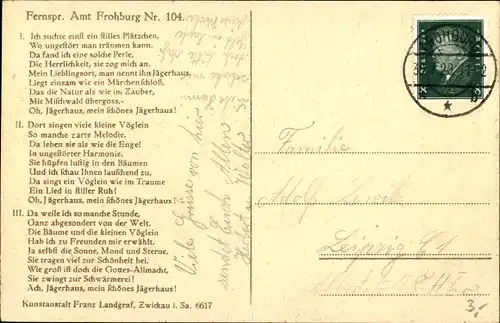 Fernspr. Amt Frohburg Nr. 104.
I. Ich suchte einst ein stilles Plätzchen,
Wo ungestört man träumen kann.
Da fand ich eine solche Perle,
Die Herrlichkeit, sie zog mich an.
Mein Lieblingsort, man nennt ihn Jägerhaus,
Liegt einsam wie ein Märchenschloß,
Das die Natur als wie im Zauber,
Mit Mischwald übergoss.-
Oh, Jägerhaus, mein schönes Jägerhaus!
II. Dort singen viele kleine Vöglein
So manche zarte Melodie.
Da leben sie als wie die Engel
In ungestörter Harmonie.
Sie hüpfen lustig in den Bäumen
Und ich schau Ihnen lauschend zu,
Da singt ein Vöglein wie im Traume
Ein Lied in stiller Ruh!
Oh, Jägerhaus, mein schönes Jägerhaus!
III. Da weile ich so manche Stunde,
Ganz abgesondert von der Welt.
Die Bäume und die kleinen Vöglein
Hab ich zu Freunden mir erwählt.
Ja selbst die Sonne, Mond und Sterne,
Sie tragen viel zur Schönheit bei.
Wie groß ist doch die Gottes-Allmacht,
Sie zwingt zur Schwärmerei!
Ach, Jägerhaus, mein schönes Jägerhaus!
Kunstanstalt Franz Landgraf, Zwickau i. Sa. 6617
Viele Grüße von hier
sendet Euch Allen
FROHBURG
8 8
Familie
Adolf
Leipzig C1
3,-